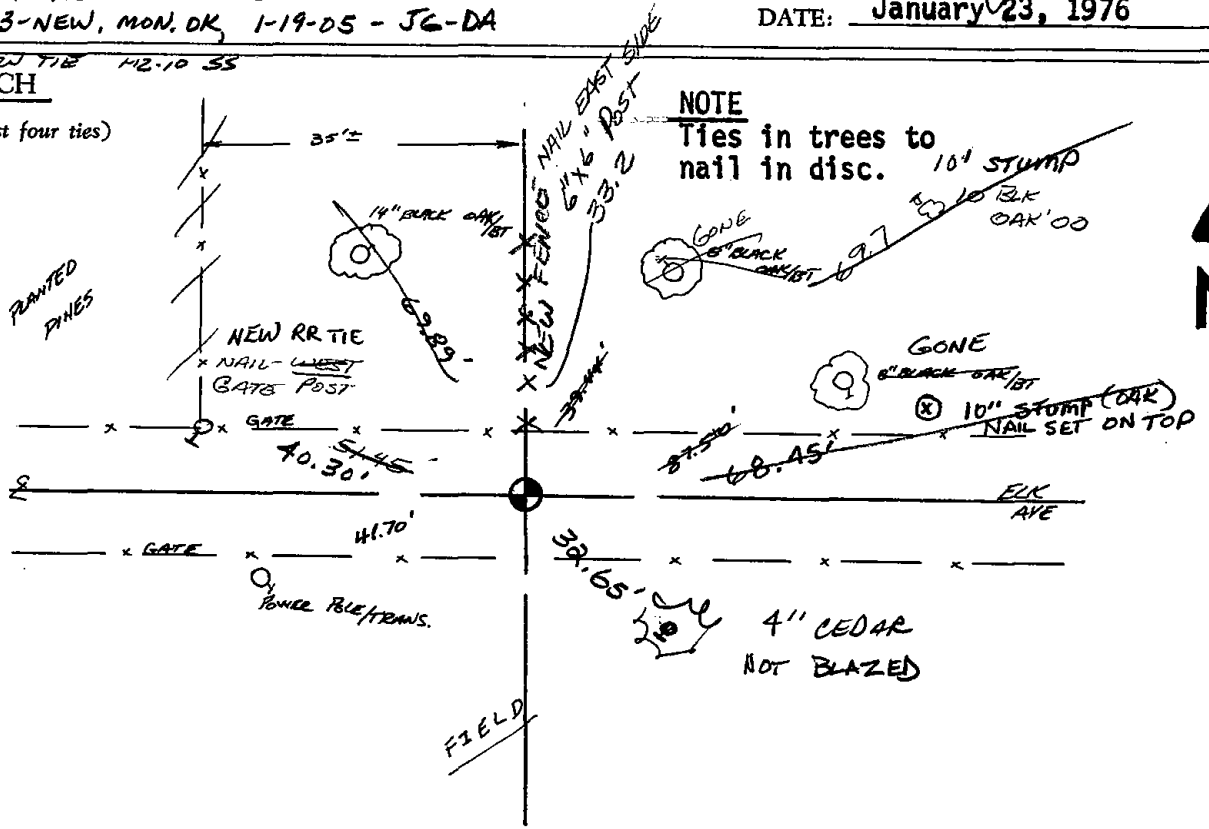 3-NEW, MON. OK, 1-19-05 - JG-DA
DATE: January 23, 1976
TIE 12-10 SS
CH
st four ties)
35'±
NEW FENCE
NAIL EAST SIDE
6"X6" POST
33.2
NOTE
Ties in trees to
nail in disc.
10" STUMP
10 BLK
OAK '00
14" BLACK OAK/BT
GONE
8" BLACK
OAK/BT
69.7
PLANTED
PINES
69.89
NEW RR TIE
NAIL-WEST
GATE POST
39.44'
GONE
8" BLACK OAK/BT
10" STUMP (OAK)
NAIL SET ON TOP
GATE
51.45
40.30'
87.50'
68.45'
ELK
AVE
41.70'
GATE
32.65'
POWER POLE/TRANS.
4" CEDAR
NOT BLAZED
FIELD